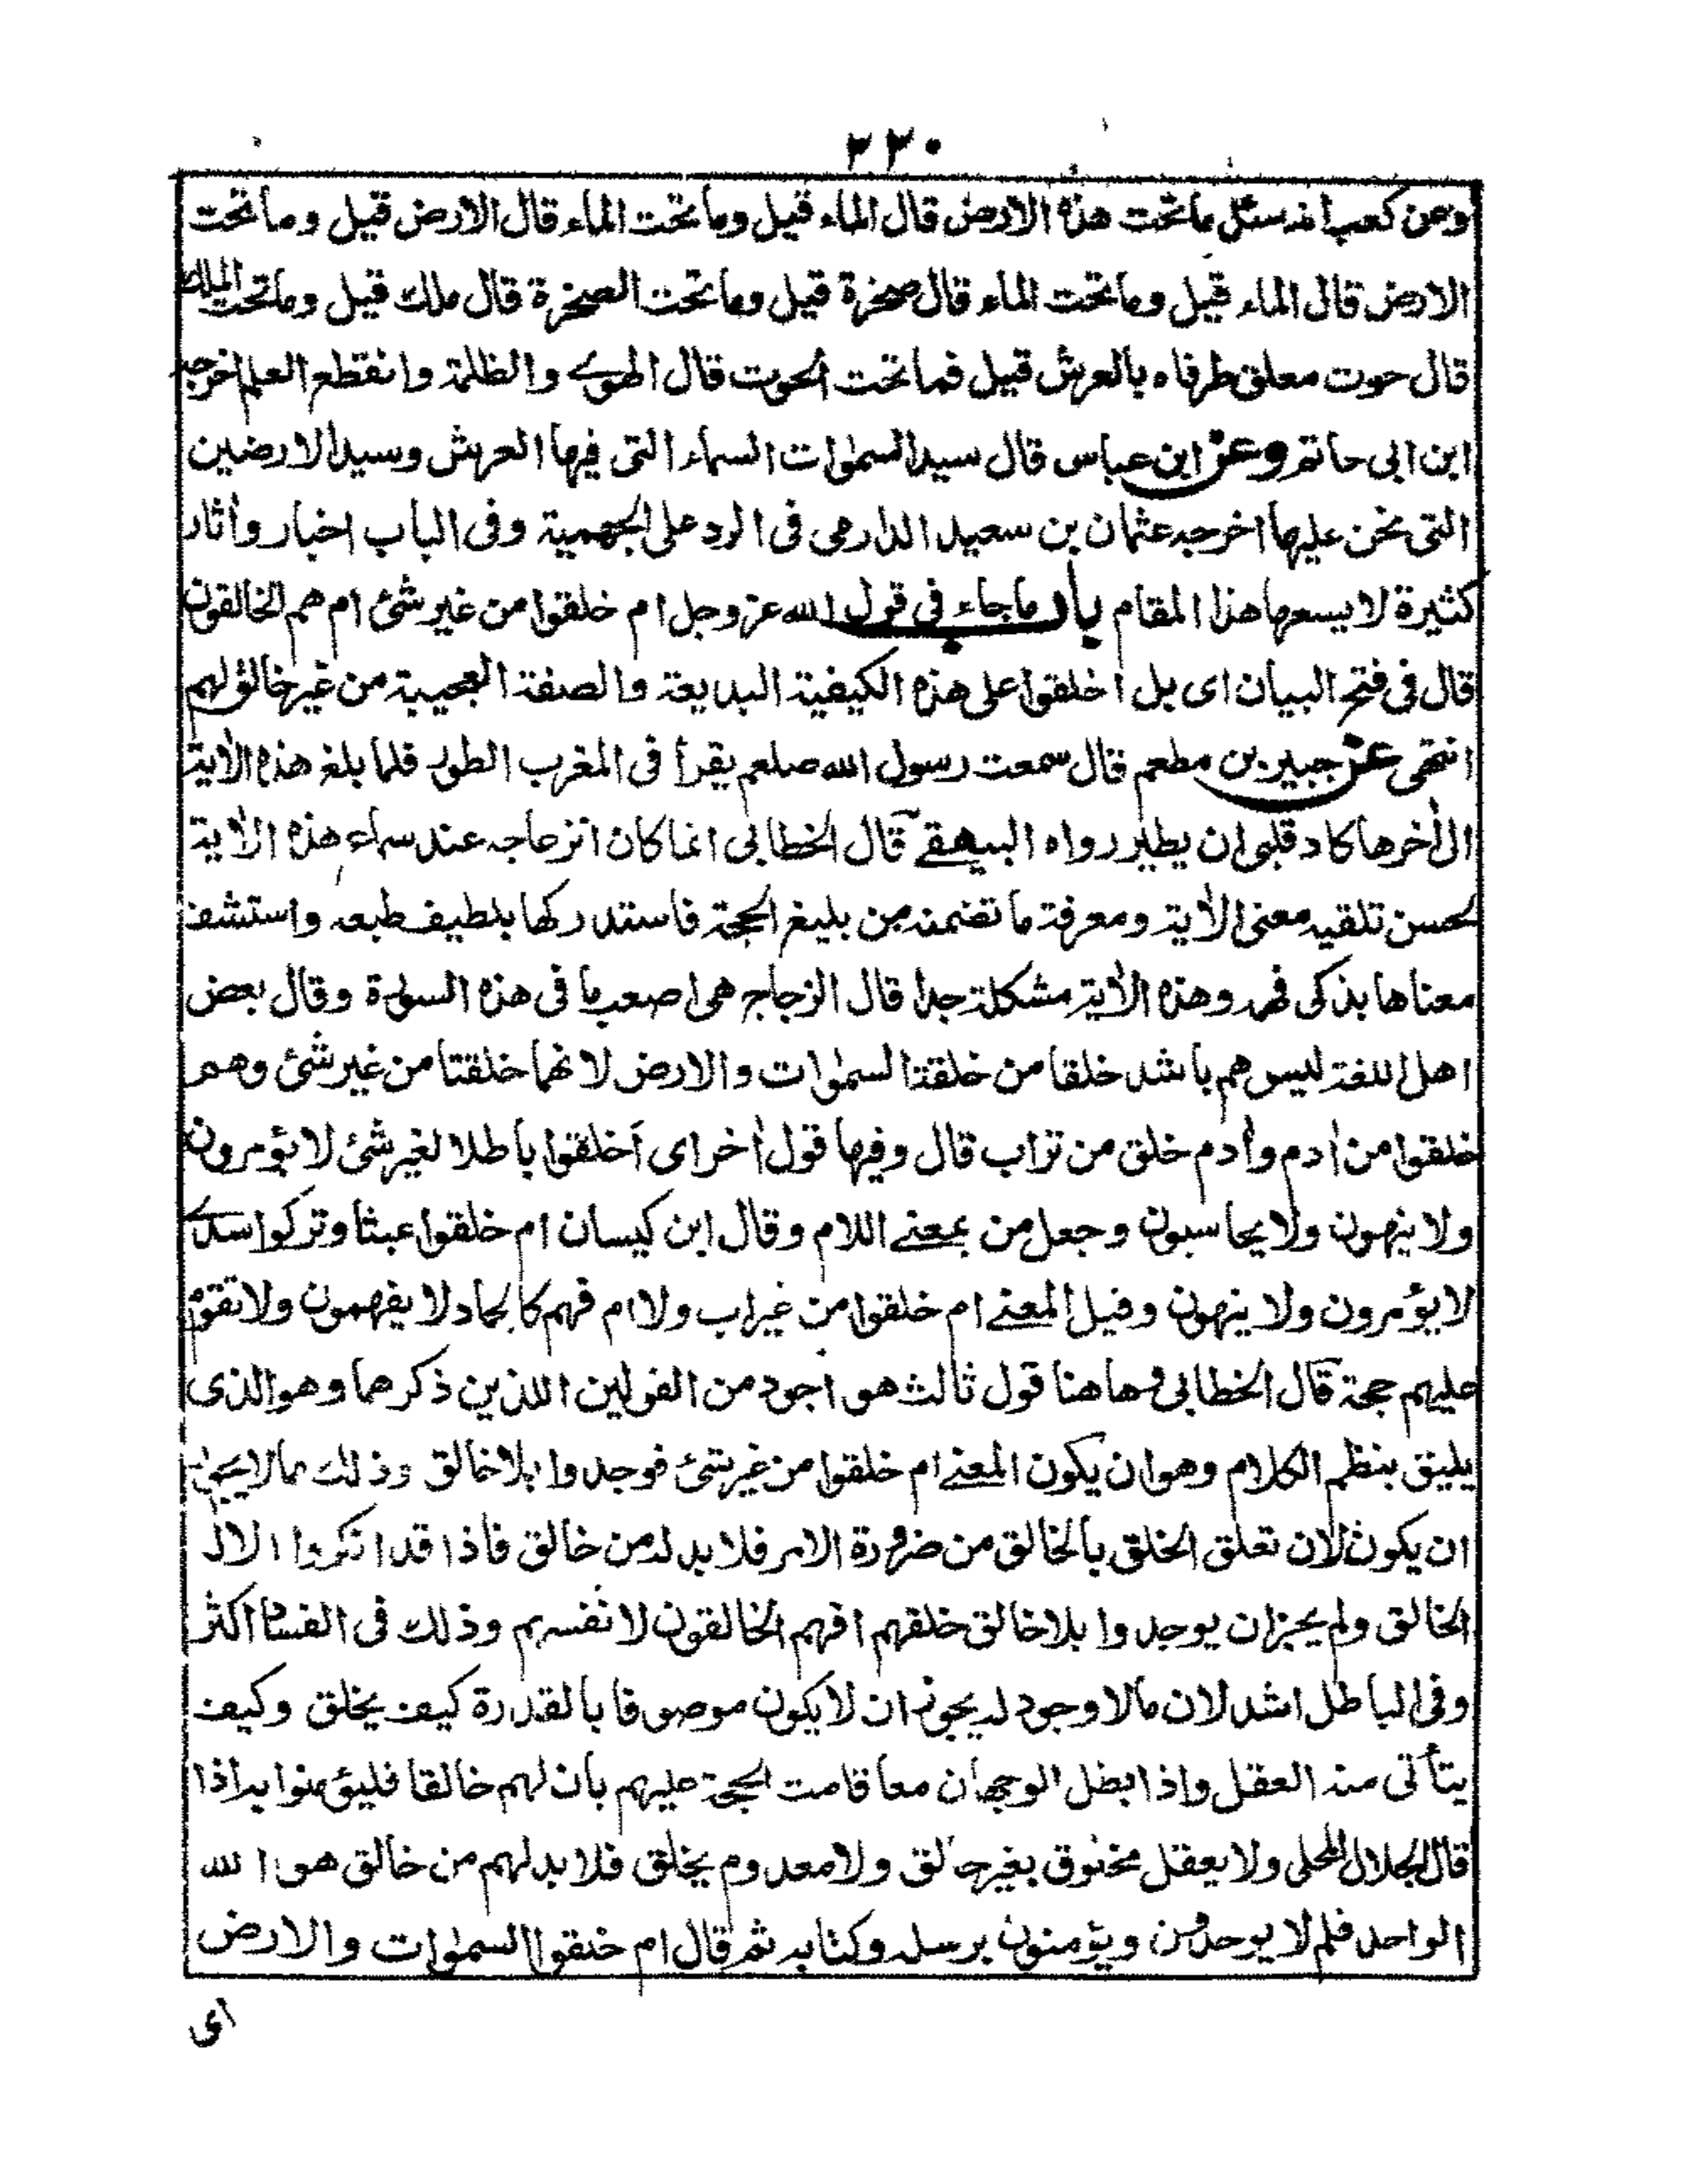 ٢٢٠
وعن كعب انه سئل ما تحت هذه الارض قال الماء قيل وما تحت الماء قال الارض قيل وما تحت
الارض قال الماء قيل وما تحت الماء قال صخرة قيل وما تحت الصخرة قال ملك قيل وما تحت الملك
قال حوت معلق طرفاه بالعرش قيل فما تحت الحوت قال الهوے والظلمة وانقطع العلم اخرجه
ابن ابى حاتم وعن ابن عباس قال سيد السمٰوات السماء التى فيها العرش وسيد الارضين
التى نحن عليها اخرجه عثمان بن سعيد الدارمى فى الرد على الجهمية وفى الباب اخبار وأثار
كثيرة لا يسعها هذا المقام باب ما جاء فى قول الله عز وجل ام خلقوا من غير شئ ام هم الخالقون
قال فى فتح البيان اى بل أخلقوا على هذه الكيفية البديعة والصفة العجيبة من غير خالق لهم
انتهى عن جبير بن مطعم قال سمعت رسول الله صلعم يقرأ فى المغرب الطور فلما بلغ هذه الأية
الى أخرها كاد قلبى ان يطير رواه البيهقے قال الخطابى انما كان انزعاجه عند سماء هذه الأية
لحسن تلقيه معنى الأية ومعرفة ما تضمنه من بليغ الحجة فاستدركها بلطيف طبعه واستشف
معناها بذكى فهمه وهذه الأية مشكلة جدا قال الزجاج هى اصعب ما فى هذه السورة وقال بعض
اهل اللغة ليس هم باشد خلقا من خلقة السمٰوات والارض لانهما خلقتا من غير شئ وهم
خلقوا من أدم وأدم خلق من تراب قال وفيها قول أخر اى أخلقوا باطلا لغير شئ لا يؤمرون
ولا ينهون ولا يحاسبون وجعل من بمعنے اللام وقال ابن كيسان ام خلقوا عبثا وتركوا سدے
لا يؤمرون ولا ينهون وقيل المعنے ام خلقوا من غير اب ولا ام فهم كالجماد لا يفهمون ولا تقوم
عليهم حجة قال الخطابى وهاهنا قول ثالث هو اجود من القولين اللذين ذكرهما وهو الذى
يليق بنظم الكلام وهو ان يكون المعنے ام خلقوا من غير شئ فوجدوا بلا خالق وذلك مما لا يجوز
ان يكون لان تعلق الخلق بالخالق من ضرورة الامر فلا بد له من خالق فاذا قد انكروا الاله
الخالق ولم يجز ان يوجدوا بلا خالق خلقهم افهم الخالقون لانفسهم وذلك فى الفساد اكثر
وفى الباطل اشد لان ما لا وجود له يجوز ان لا يكون موصوفا بالقدرة كيف يخلق وكيف
يتأتى منه العقل واذا بطل الوجهان معا قامت الحجة عليهم بان لهم خالقا فليؤمنوا به اذا
قال الجلال المحلى ولا يعقل مخلوق بغير خالق ولا معدوم يخلق فلا بد لهم من خالق هو الله
الواحد فلم لا يوحدون ويؤمنون برسله وكتابه ثم قال ام خلقوا السمٰوات والارض
اى